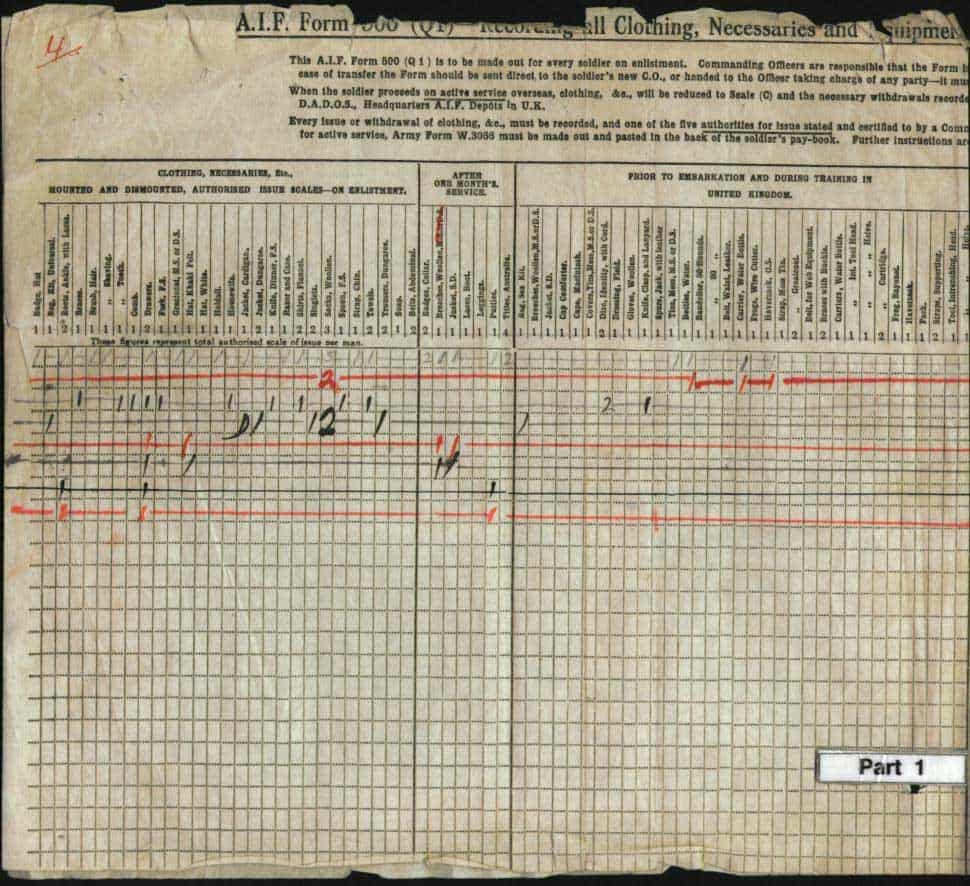 4
A.I.F. Form 500 (Q1)—Recording all Clothing, Necessaries and Equipmen
This A.I.F. Form 500 (Q 1) is to be made out for every soldier on enlistment. Commanding Officers are responsible that the Form
ease of transfer the Form should be sent direct to the soldier's new C.O., or handed to the Officer taking charge of any party—it mu
When the soldier proceeds on active service overseas, clothing, &c., will be reduced to Scale (C) and the necessary withdrawals recorde
D.A.D.O.S., Headquarters A.I.F. Depôts in U.K.
Every issue or withdrawal of clothing, &c., must be recorded, and one of the five authorities for issue stated and certified to by a Com
for active service, Army Form W.3066 must be made out and pasted in the back of the soldier's pay-book. Further instructions ar
CLOTHING, NECESSARIES, Etc.,
MOUNTED AND DISMOUNTED, AUTHORISED ISSUE SCALES—ON ENLISTMENT.
AFTER
ONE MONTH'S
SERVICE.
PRIOR TO EMBARKATION AND DURING TRAINING IN
UNITED KINGDOM.
Badge, Hat
Bag, Kit, Universal.
Boots, Ankle, with Laces.
Braces.
Brush, Hair.
„ Shaving.
„ Tooth.
Comb.
Drawers.
Fork, F.S.
Greatcoat, M.S. or D.S.
Hat, Khaki Felt.
Hat, White.
Holdall.
Housewife.
Jacket, Cardigan.
Jacket, Dungaree.
Knife, Dinner, F.S.
Razor and Case.
Shirts, Flannel.
Singlets.
Socks, Woollen.
Spoon, F.S.
Strap, Chin.
Towels.
Trousers, Dungaree.
Soap.
Belts, Abdominal.
Badges, Collar.
Breeches, Woollen, M.S. or D.S.
Jacket, S.D.
Laces, Boot.
Leggings.
Putties.
Titles, Australia.
Bag, Sea Kit.
Breeches, Woollen, M.S. or D.S.
Jacket, S.D.
Cap Comforter.
Cape, Mackintosh.
Disc, Identity, with Cord.
Dressing, Field.
Gloves, Woollen.
Knife, Clasp, and Lanyard.
Belt, Waist, Leather.
Carrier, Water Bottle.
Frogs, Wire Cutter.
Haversack, G.S.
Strap, Mess Tin.
„ Greatcoat.
Belt, for Web Equipment.
Braces with Buckle.
Carriers, Water Bottle.
„ Int. Tool Head.
„ „ „ Helve.
„ Cartridge.
Frog, Bayonet.
Haversack.
Pack.
Straps, Supporting.
Tool, Intrenching, Head.
These figures represent total authorised scale of issue per man.
2
2
2
Part 1